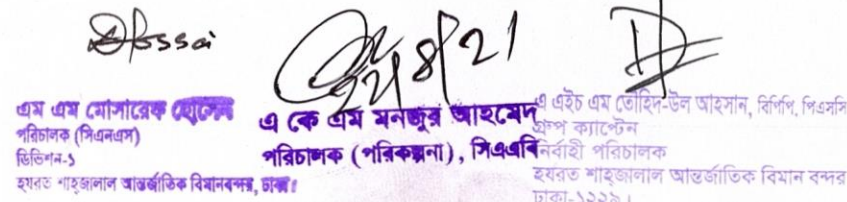 22/8/21
এম এম মোসারেফ হোসেন
পরিচালক (সিএনএস)
ডিভিশন-১
হযরত শাহ্জালাল আন্তর্জাতিক বিমানবন্দর, ঢাকা।
এ কে এম মনজুর আহমেদ
পরিচালক (পরিকল্পনা), সিএএবি
এ এইচ এম তৌহিদ-উল আহসান, বিপিপি, পিএসসি
গ্রুপ ক্যাপ্টেন
নির্বাহী পরিচালক
হযরত শাহ্জালাল আন্তর্জাতিক বিমান বন্দর
ঢাকা-১২২৯।